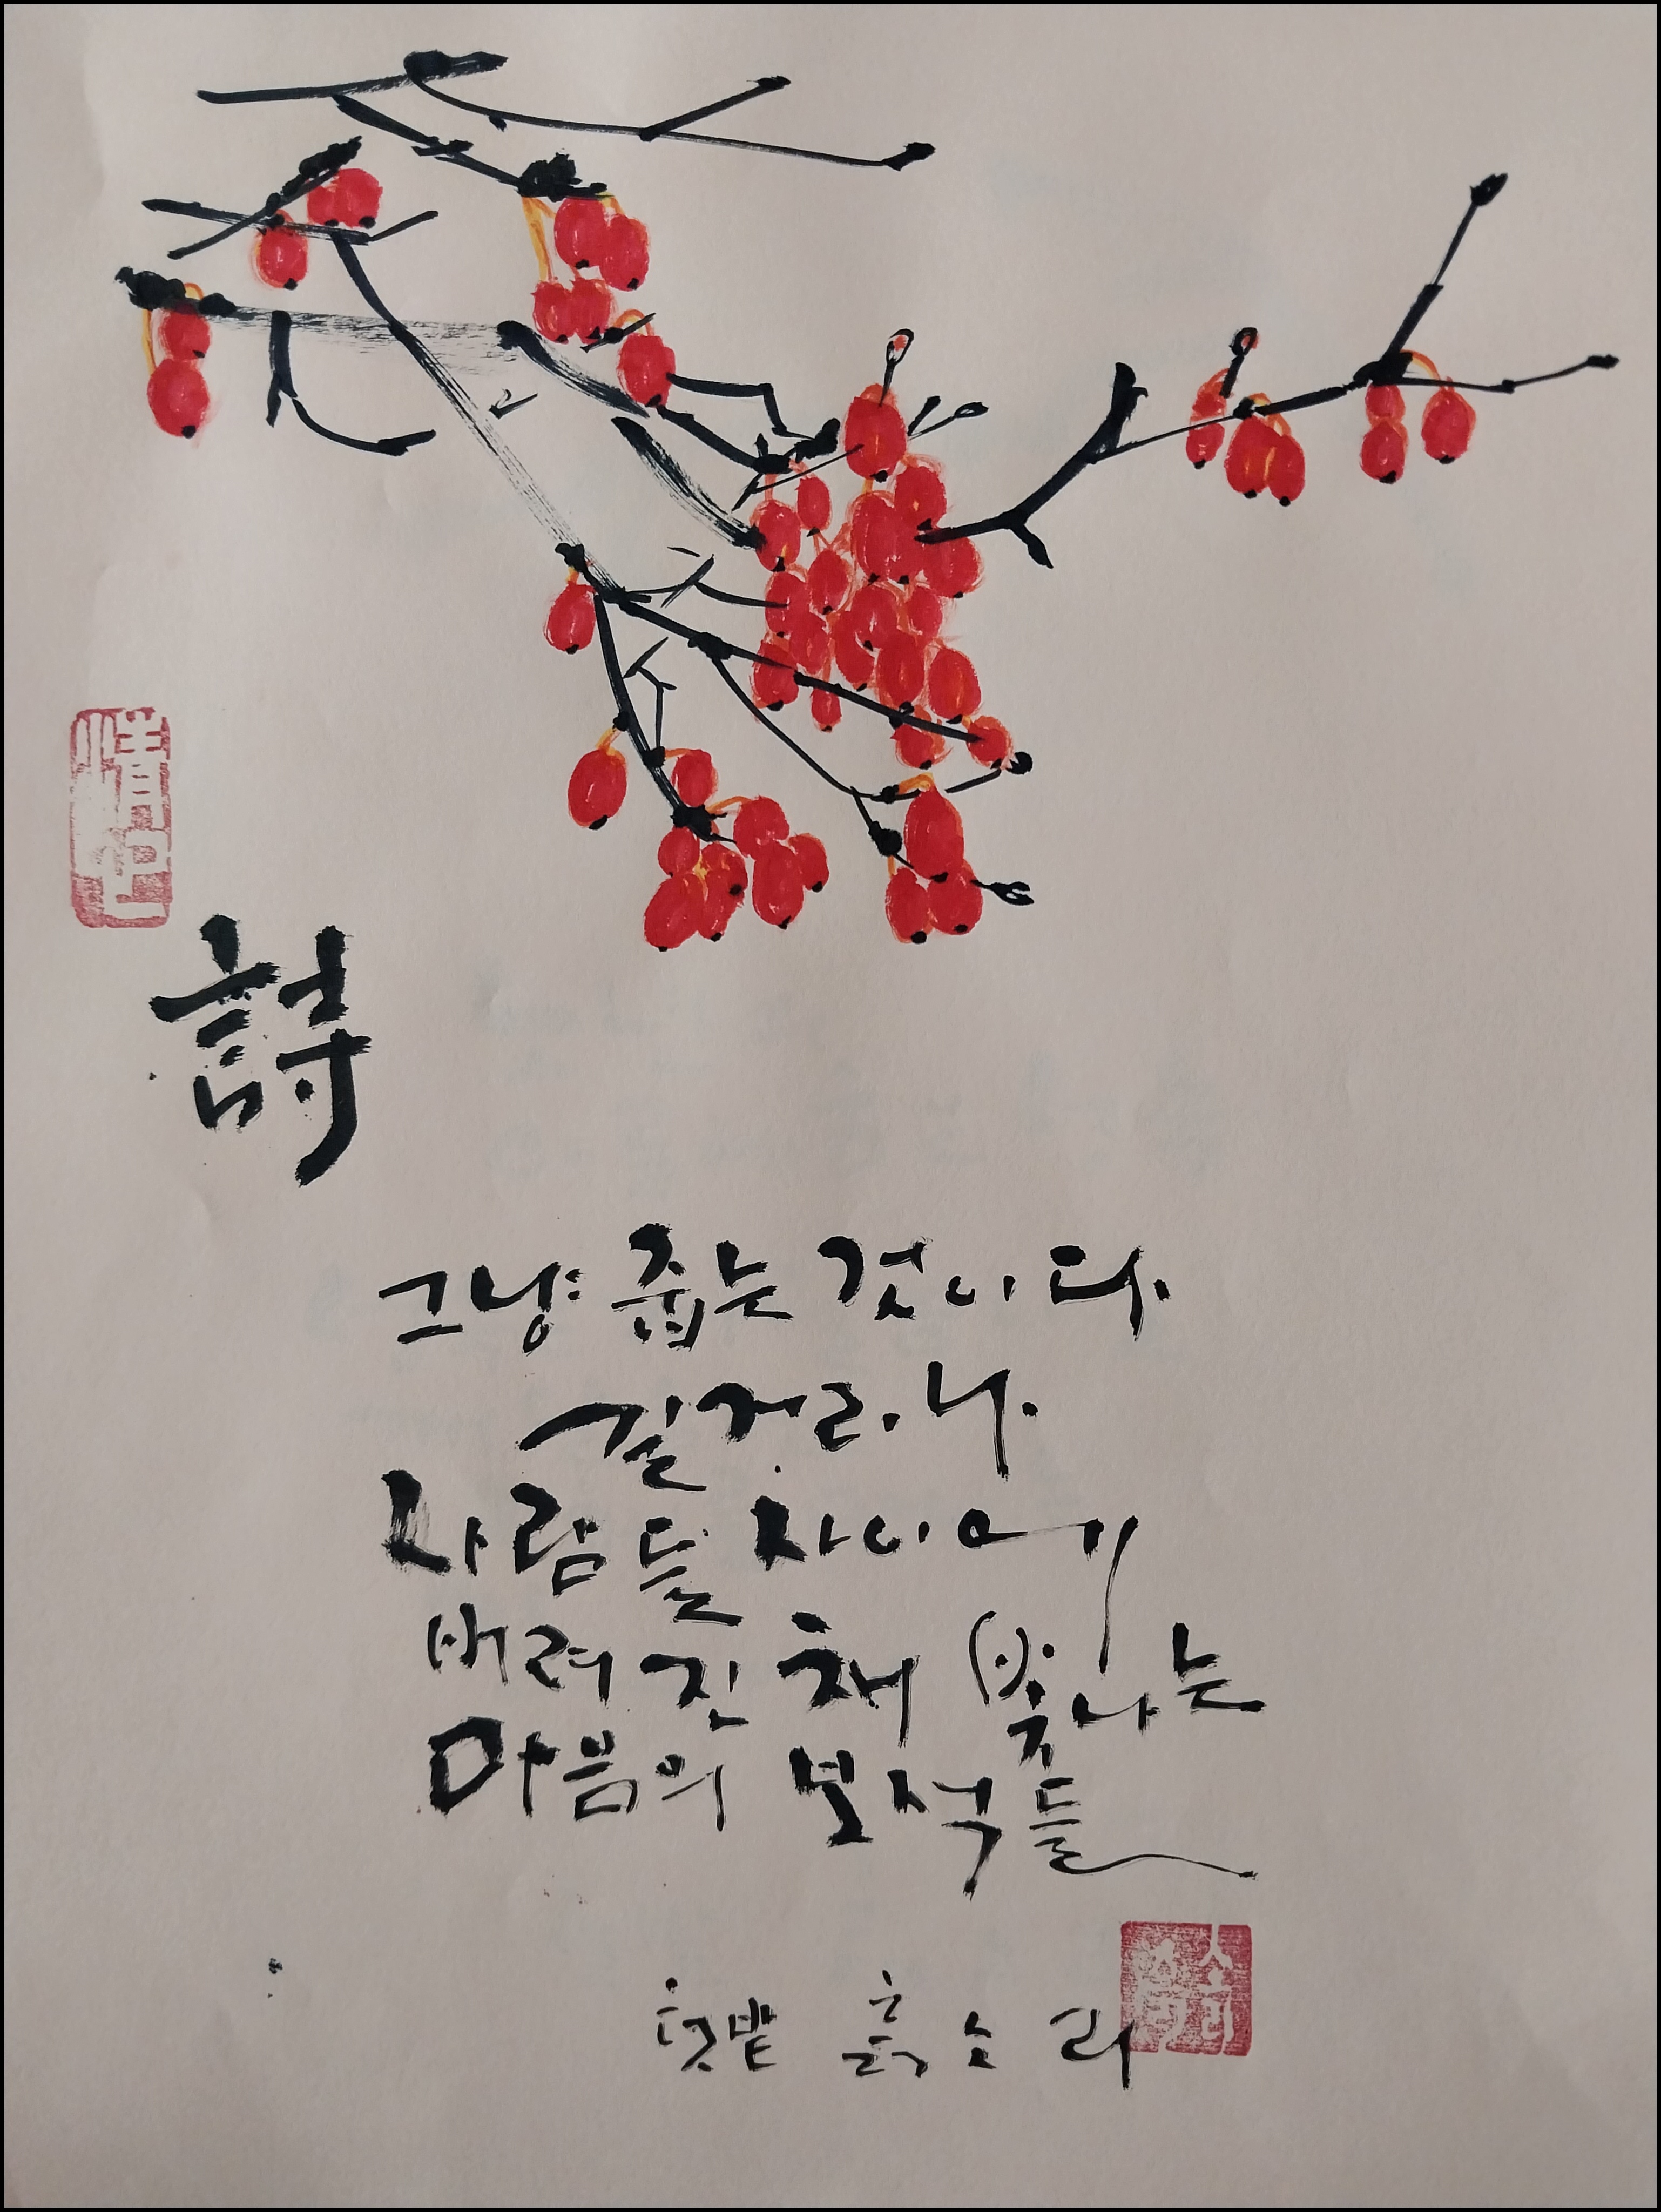 詩
그냥 줍는 것이다
길거리나
사람들 사이에
버려진 채 빛나는
마음의 보석들
텃밭 흙소리